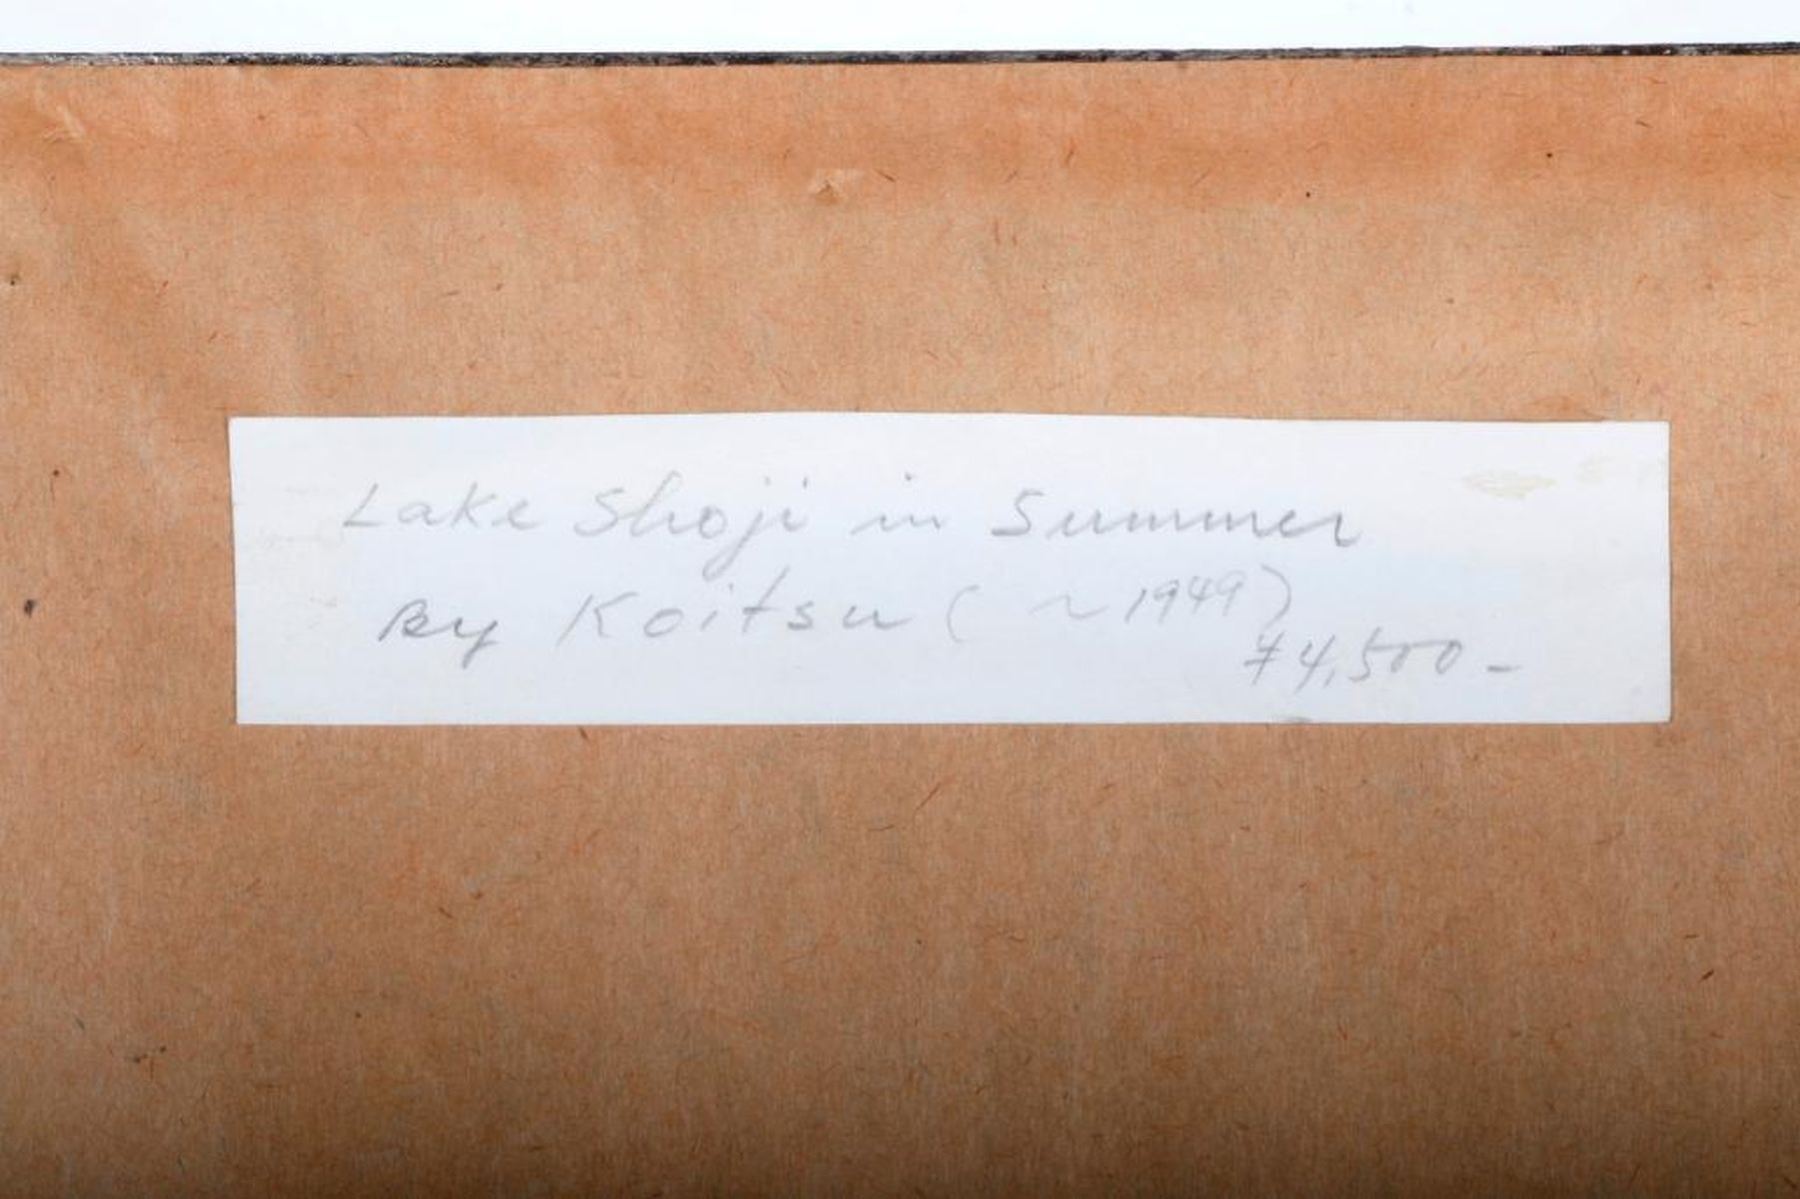 Lake Shoji in Summer
By Koitsu ( ~1949)
¥4,500-